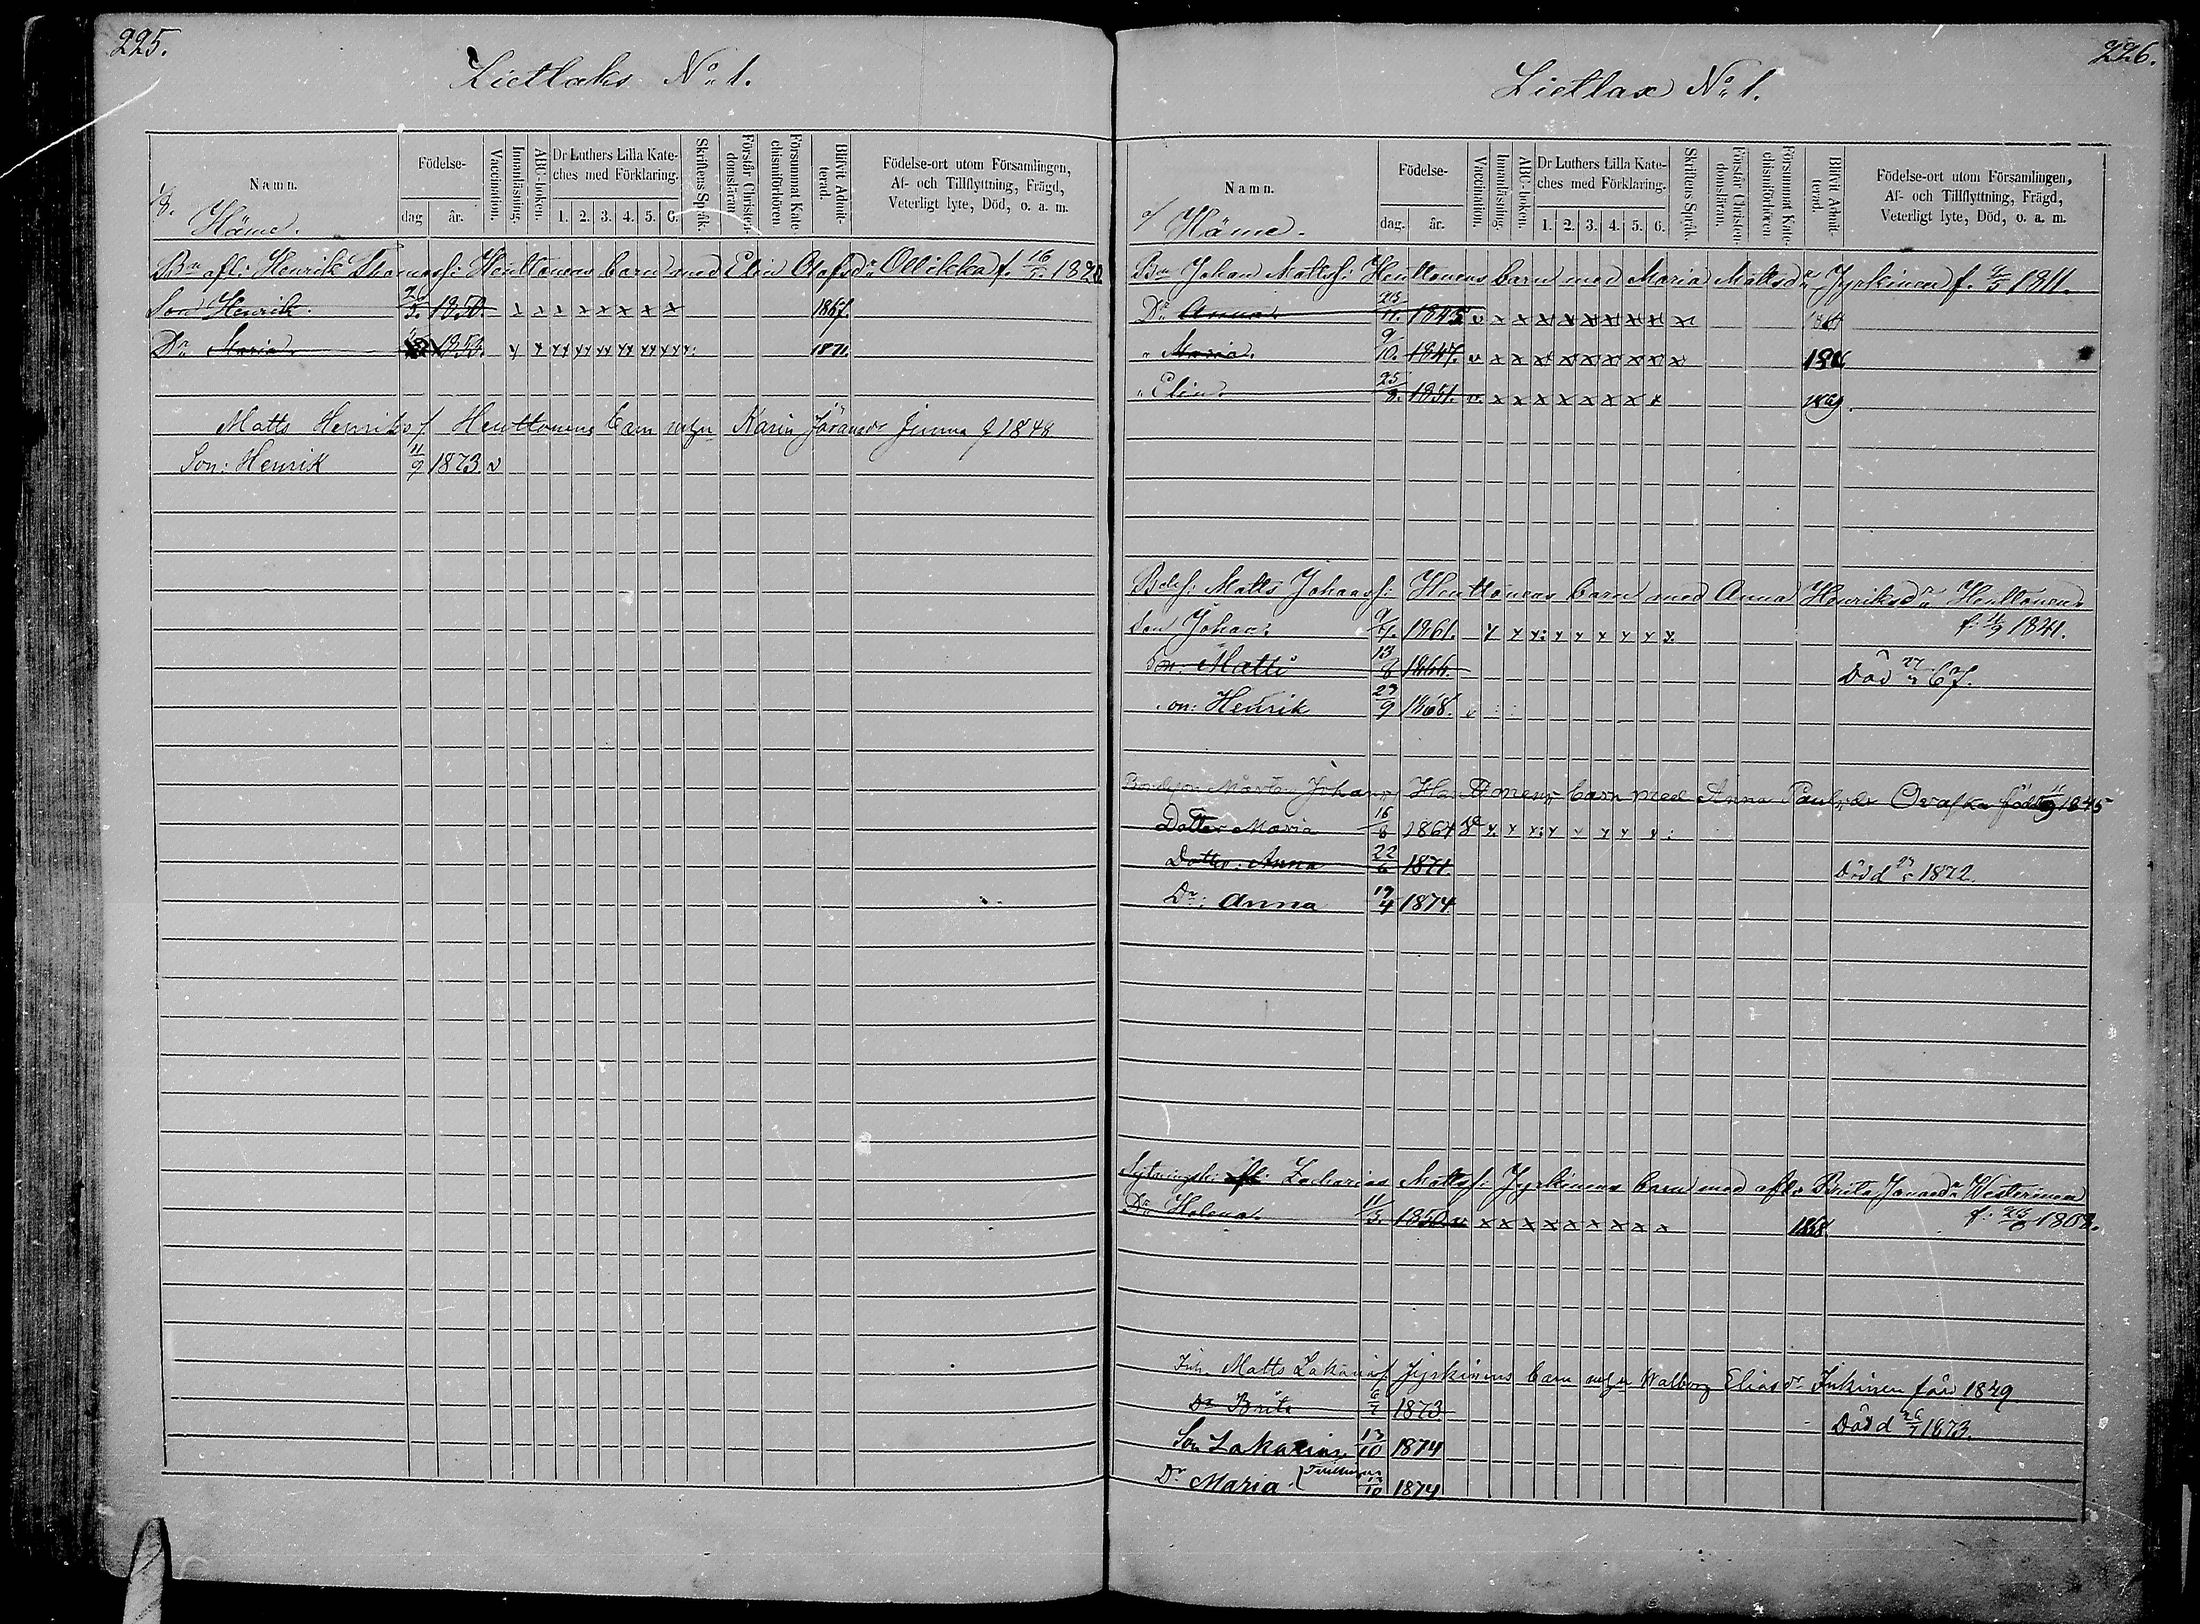 225.
Lietlaks No 1.
Namn.
Födelse-
dag
år.
Vaccination.
Innanläsning.
ABC-boken.
Dr Luthers Lilla Kate-
ches med Förklaring.
1. 2. 3. 4. 5. 6.
Skriftens Språk.
Förstår Christen-
domsläran.
Försummat Kate-
chismiförhören
Blifvit Admit-
terad.
Födelse-ort utom Församlingen,
Af- och Tillflyttning, Frägd,
Veterligt lyte, Död, o. a. m.
Häme.
Bn afl: Henrik Thomasf: Henttonens barn med Elin Olofsdr Ollikka f. 16/5 1820
Son Henrik. 1850. x x x x x x x x 1867.
Dr Maria. 1853. 1871.
Matts Henriksf Henttonens barn Karin Göransdr f 1848
Son: Henrik 11/9 1873. v
226.
Lietlax No 1.
Namn.
Födelse-
dag.
år.
Vaccination.
Innanläsning
ABC-boken.
Dr Luthers Lilla Kate-
ches med Förklaring.
1. 2. 3. 4. 5. 6.
Skriftens Språk.
Förstår Christen-
domsläran.
Försummat Kate-
chismiförhören
Blifvit Admit-
terad.
Födelse-ort utom Församlingen,
Af- och Tillflyttning, Frägd,
Veterligt lyte, Död, o. a. m.
Häme.
Bn Johan Mattsf: Henttonens barn med Maria Mattsdr Jyrkinen f. 1811.
Dr Anna. 23/11. 1845 v x x x x x x x x x
" Maria. 9/10. 1847. v x x x x x x x x x
" Elin. 25/8. 1851. v. x x x x x x x x 1869.
Matts Johansf: Henttonens barn med Anna Henriksdr Henttonens
f. 11/9 1841.
Son Johan. 1861.
Son: Matts 13/8 1866. Död 67.
Son: Henrik 23/9 1868. v
Mårten Johansf Henttonens barn med Anna Paulsdr född 1845
Dotter Maria 16/8 1867
Dotter: Anna 22/6 1871. Död d 1872.
Dr: Anna 17/4 1874
afl: Zacharias Mattsf: Jyrkinens barn med afl: Brita Jonasdr Westerinen
f: 1808.
Dr Helena. 11/3. 1850. v. x x x x x x x x x 1868
Inh. Matts Zakariasf Jyrkinens barn Walborg Eliasdr Inkinen 1849
Dr Brita 6/7 1873 Död d 26/7 1873.
Son Zakarias. 13/10 1874
Dr Maria 13/10 1874